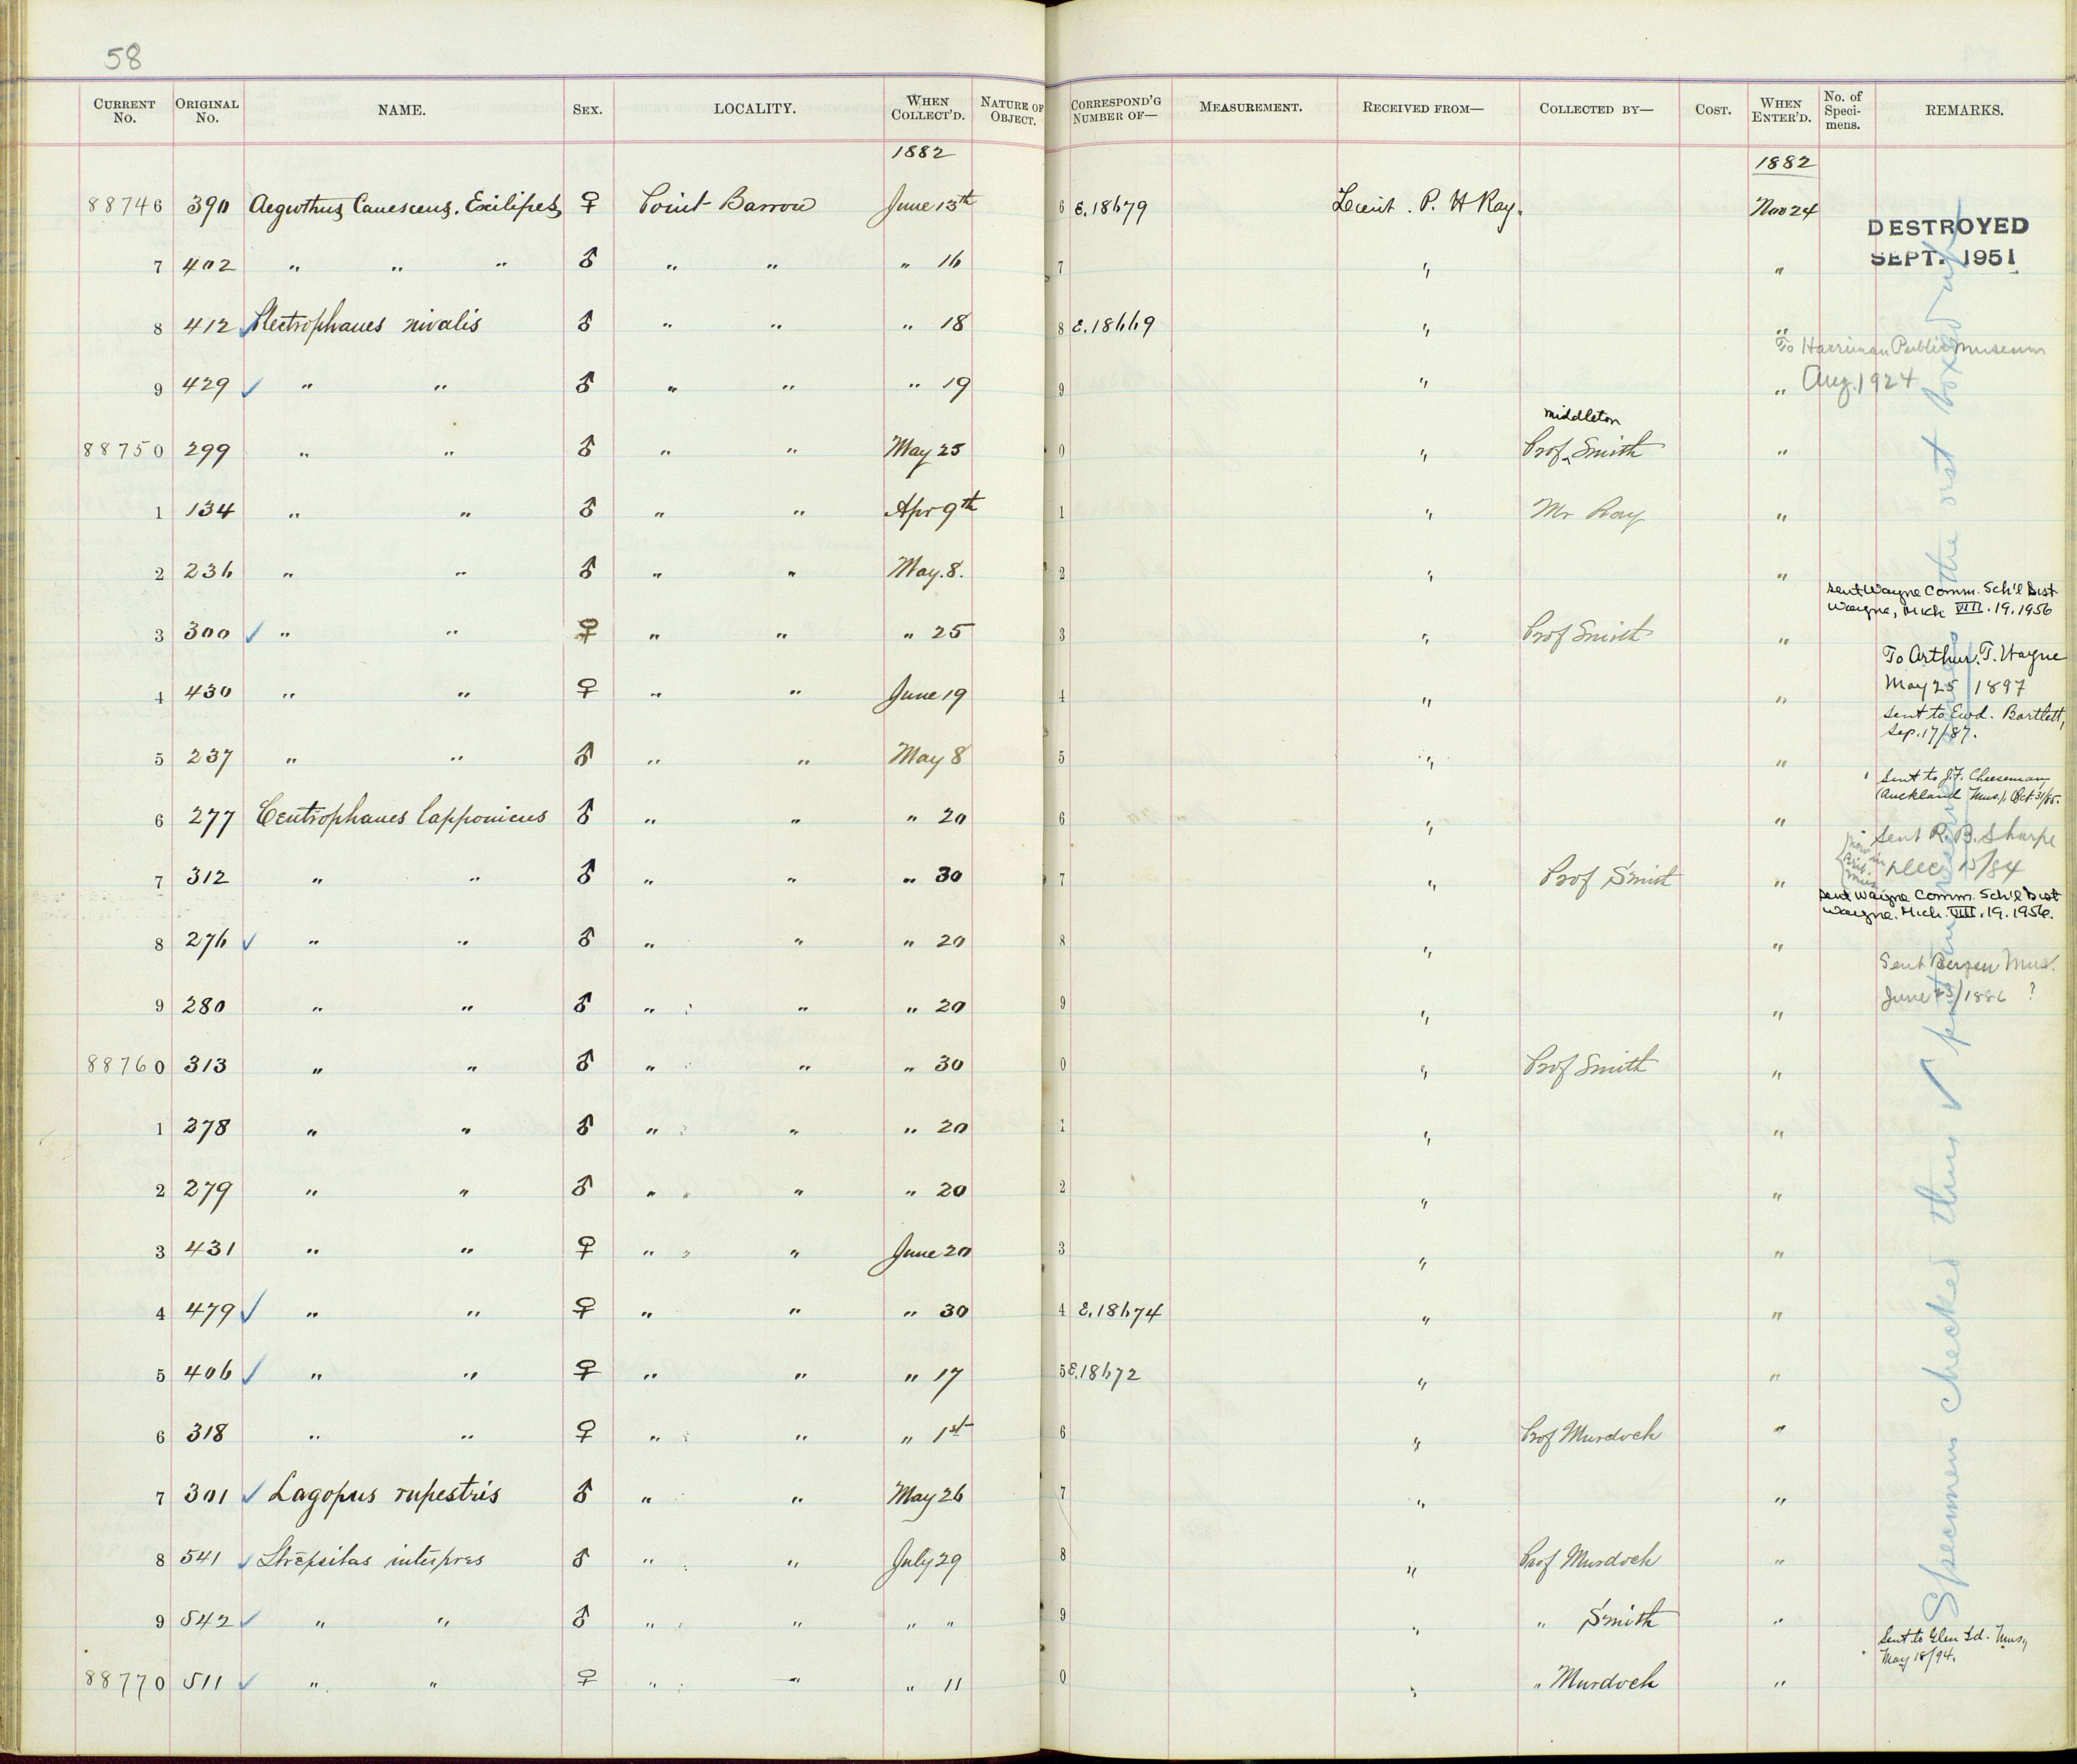 58
CURRENT No. ORIGINAL No. NAME. SEX. LOCALITY. WHEN COLLECT'D. NATURE OF OBJECT. CORRESPOND'G NUMBER OF— MEASUREMENT. RECEIVED FROM— COLLECTED BY— COST. WHEN ENTER'D. No. of Speci-mens. REMARKS.
1882 1882
88746 390 Aegiothus Canescens. Exilipes ♀ Point Barrow June 13th 6 E.18679 Lieut. P. H Ray. Nov 24 DESTROYED
7 402 " " " ♂ " " " 16 7 " " SEPT. 1951
8 412 ✓ Plectrophanes nivalis ♂ " " " 18 8 E.18669 " "
To Harriman Public Museum
9 429 ✓ " " ♂ " " " 19 9 " " Aug. 1924
middleton
88750 299 " " ♂ " " May 25 0 " Prof ‸ Smith "
1 134 " " ♂ " " Apr 9th 1 " Mr Ray "
2 236 " " ♂ " " May. 8. 2 " "
sent Wayne Comm. Sch'l Dist
Wayne, Mich VIII. 19. 1956
3 300 ✓ " " ♀ " " " 25 3 " Prof Smith "
To Arthur. T. Wayne
4 430 " " ♀ " " June 19 4 " " May 25 1897
sent to Ewd. Bartlett,
Sep. 17/87.
5 237 " " ♂ " " May 8 5 " "
Sent to J.F. Cheeseman
(Auckland Mus.), Oct. 31/85.
6 277 Centrophanes lapponicus ♂ " " " 20 6 " "
Sent R. B. Sharpe
7 312 " " ♂ " " " 30 7 " Prof Smith " Now in Brit. Mus. Dec 15/84
sent Wayne Comm. Sch'l Dist
Wayne. Mich. VIII. 19. 1956.
8 276 ✓ " " ♂ " " " 20 8 " "
Sent Bergen Mus.
9 280 " " ♂ " " " 20 9 " " June 23/1886 ?
88760 313 " " ♂ " " " 30 0 " Prof Smith "
1 278 " " ♂ " " " 20 1 " "
2 279 " " ♂ " " " 20 2 " "
3 431 " " ♀ " " June 20 3 " "
4 479 ✓ " " ♀ " " " 30 4 E.18674 " "
5 406 ✓ " " ♀ " " " 17 5 E.18672 " "
6 318 " " ♀ " " " 1st 6 " Prof Murdoch "
7 301 ✓ Lagopus rupestris ♂ " " May 26 7 " "
8 541 ✓ Strepsilas interpres ♂ " " July 29 8 " Prof Murdoch "
9 542 ✓ " " ♂ " " " " 9 " " Smith "
Sent to Glen Id. Mus,
May 18/94.
88770 511 ✓ " " ♀ " " " 11 0 " " Murdoch "
Specimens checked thus ✓ put in reserve series the rest boxed up